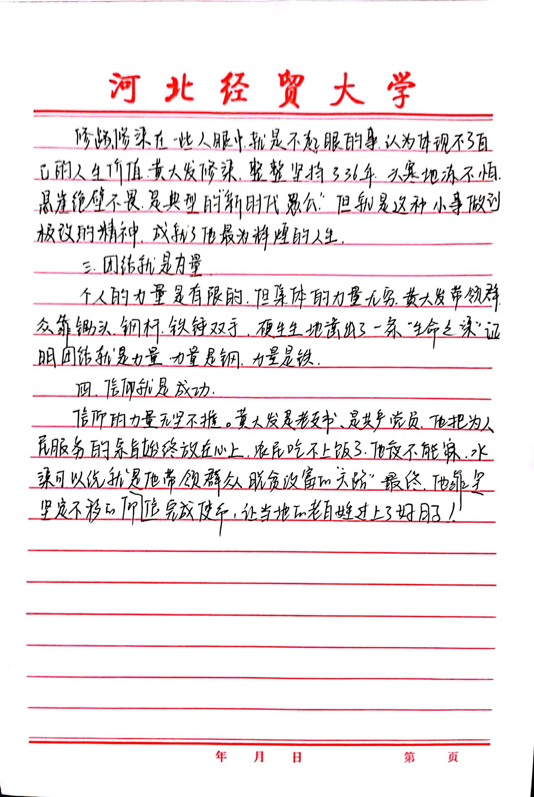 河北经贸大学
修路修渠在一些人眼中就是不起眼的事,认为体现不了自
己的人生价值.黄大发修渠,整整坚持了36年,天寒地冻不怕,
悬崖绝壁不畏,是典型的"新时代愚公".但就是这种小事做到
极致的精神,成就了他最为辉煌的人生.
三.团结就是力量.
个人的力量是有限的,但集体的力量无穷.黄大发带领群
众靠锄头、钢杆、铁锤双手,硬生生地凿出了一条"生命之渠"证
明团结就是力量 力量是钢,力量是铁.
四.信仰就是成功.
信仰的力量无坚不摧。黄大发是老支书、是共产党员,他把为人
民服务的宗旨始终放在心上,农民吃不上饭了,他夜不能寐,水
渠可以说就是他带领群众脱贫致富的 最终,他靠坚
坚定不移的仰信完成使命,让当地的老百姓过上了好日子!
年 月 日 第 页